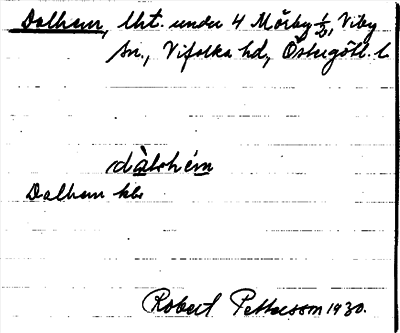 Dalhem, lht. under 4 Mörby ½, Viby
sn., Vifolka hd, Östergötl. l.
dàlhém
Dalhem kbr
Robert Pettersson 1930.